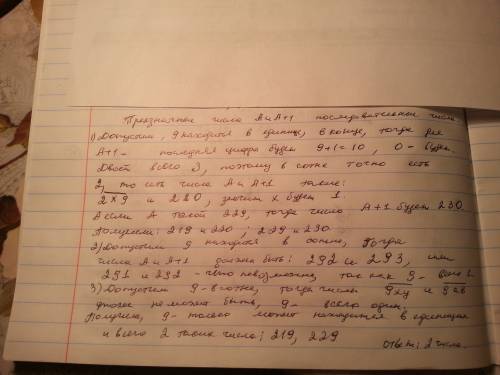 Трехзначные числа А и А+1 последовательные числа
1) Допустим, 9 находится в единице, в конце, тогда для
А+1 - последняя цифра будет 9+1=10, 0 - будет.
Двоек всего 3, поэтому в сотне точно есть
2, то есть числа А и А+1 такие:
2х9 и 220, значит х будет 1.
А если А такой 229, тогда число А+1 будет 230.
Получаем: 219 и 220; 229 и 230.
2) Допустим 9 находится в сотне, тогда
числа А и А+1 должна быть: 292 и 293, или
291 и 292 - невозможно, так как 9 -
3) Допустим 9 - в сотне, тогда числа 9ху и 9ав
этого не может быть, 9 - всего один.
Получаем, 9 - только может находится в единицах
и всего 2 таких числа: 219, 229
ответ: 2 числа.